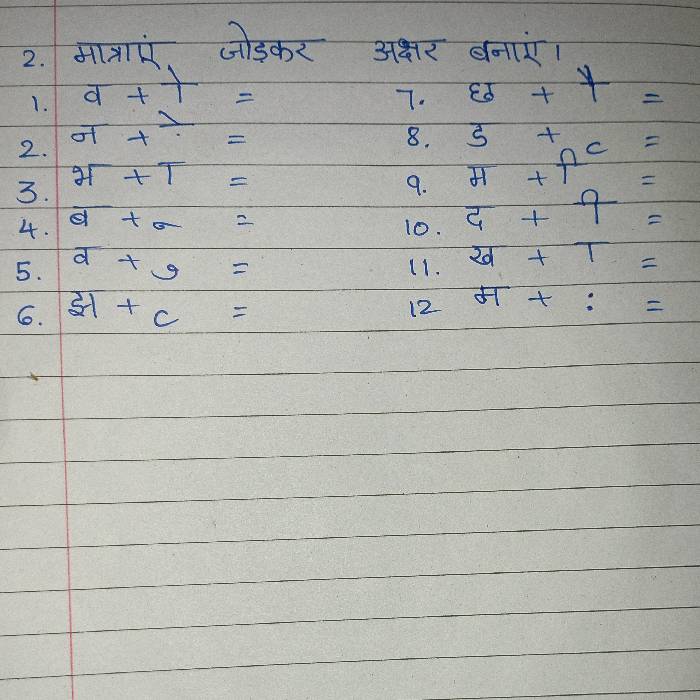 2. मात्राएं जोड़कर अक्षर बनाएं।
1. व + ो = 7. छ + ौ =
2. न + े = 8. ड + ृ =
3. भ + ा = 9. म + ि =
4. ब + ू = 10. द + ी =
5. व + ु = 11. ख + ा =
6. झ + ृ = 12 म + : =